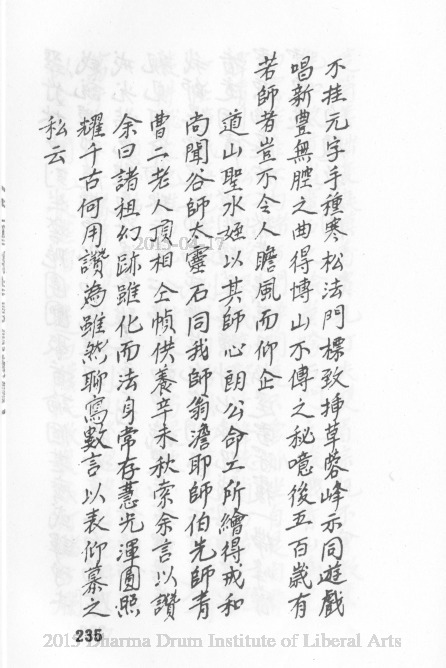 不挂元字手種寒松法門標致挿草磬峰示同遊戲
唱新豊無腔之曲得博山不傳之秘噫後五百歲有
若師者豈不令人瞻風而仰企
道山聖水 以其師心朗公命工所繪得戒和
尚聞谷師太靈石同我師翁澹耶師伯先師青
曹二老人頂相仝幀供養辛未秋索余言以讃
余曰諸祖幻跡雖化而法身常存慧光渾圓照
耀千古何用讃為雖然聊寫數言以表仰慕之
私云
2015-04-17
235
2015 Dharma Drum Institute of Liberal Arts